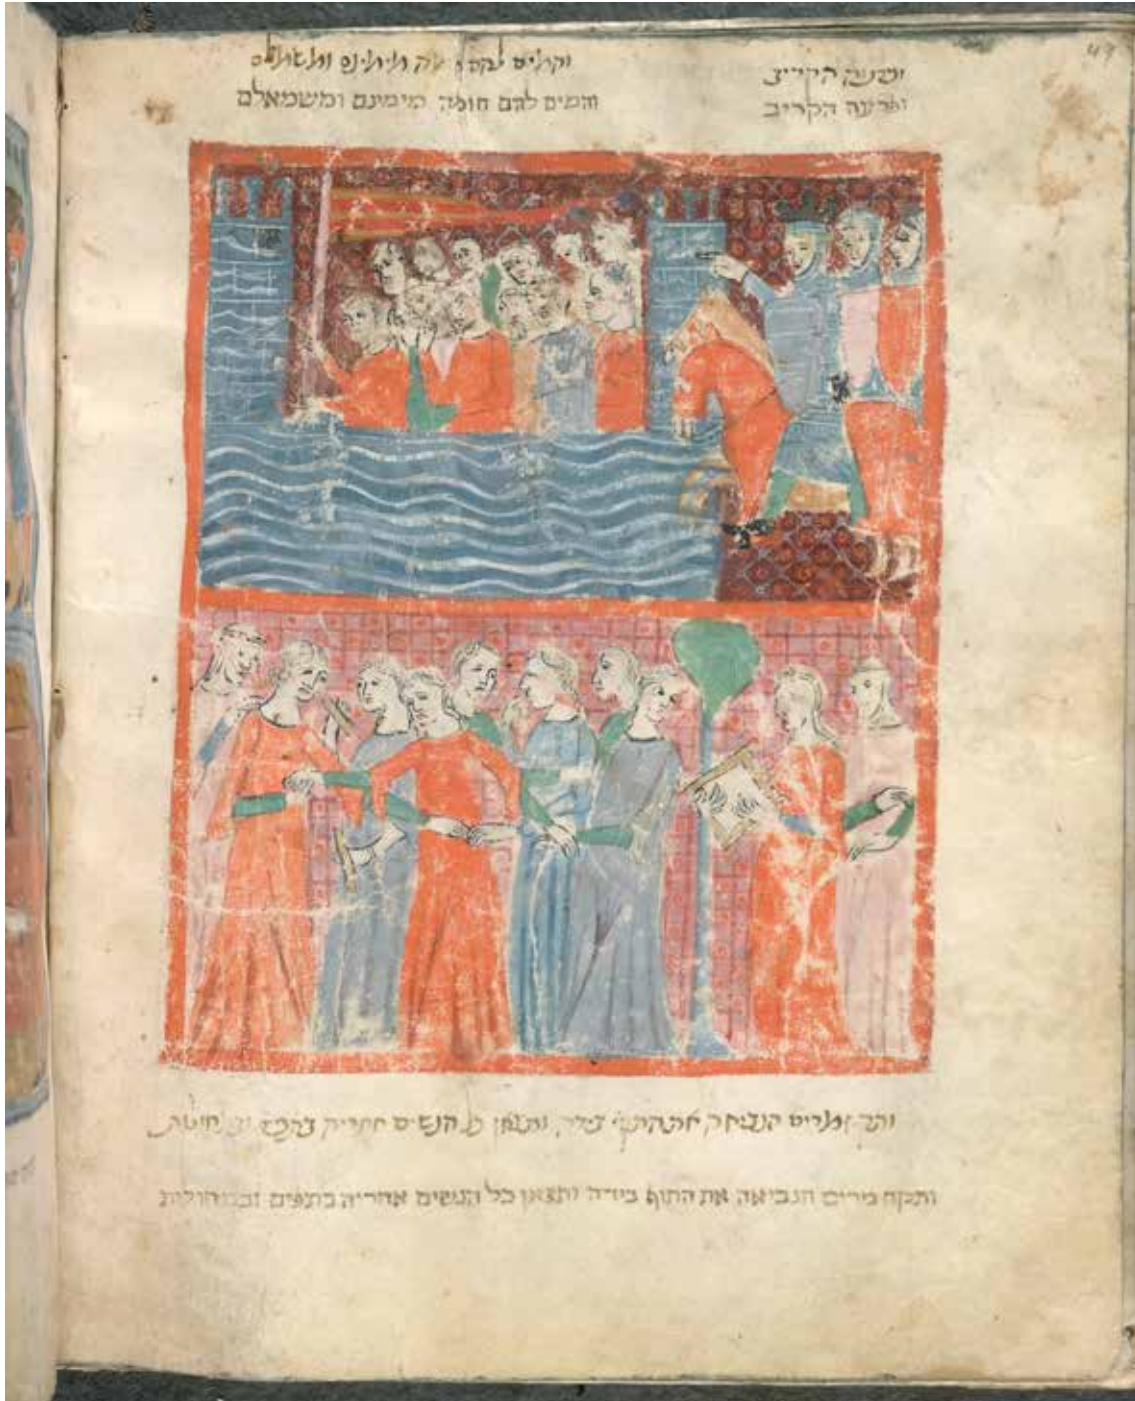 47
ופרעה הקריב
ופרעה הקריב
והמים להם חומה מימינם ומשמאלם
והמים להם חומה מימינם ומשמאלם
ותקח מרים הנביאה את התוף בידה ותצאן כל הנשים אחריה בתפים ובמחולות
ותקח מרים הנביאה את התוף בידה ותצאן כל הנשים אחריה בתפים ובמחולות